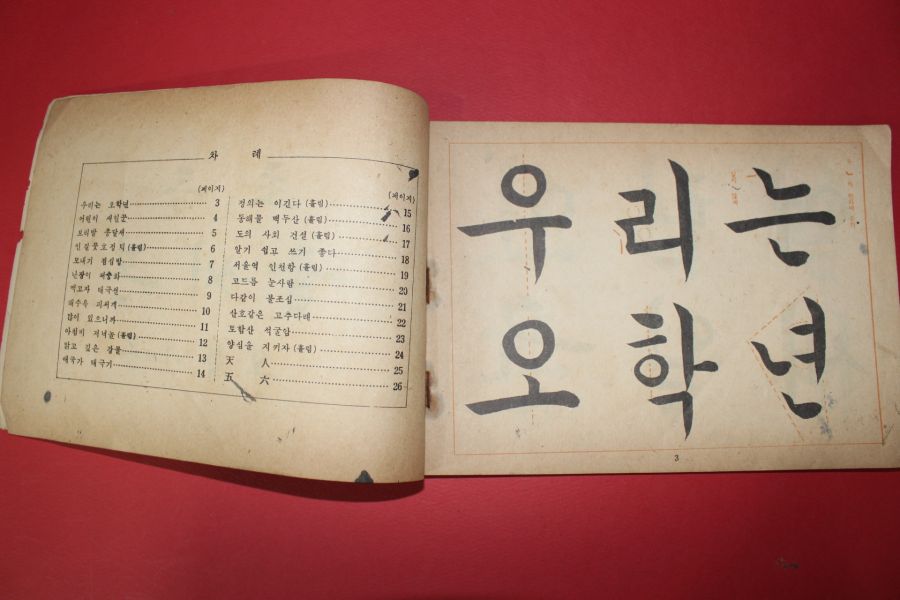 차 례
(페이지)
우리는 오학년 3
어린이 세일꾼 4
보리밭 종달새 5
인걸꽃호정틱(흘림) 6
모내기 점심밥 7
난쟁이 채송화 8
먹고자 태국선 9
옥수수 피서객 10
많이 있으니까 11
아침비 저녁놀(흘림) 12
맑고 깊은 강물 13
애국가 태국기 14
(페이지)
정의는 이긴다(흘림) 15
동해물 백두산(흘림) 16
도의 사회 건설(흘림) 17
알기 쉽고 쓰기 좋다 18
서울역 인천항(흘림) 19
고드름 눈사람 20
다같이 불조심 21
산호같은 고추다래 22
토함산 석굴암 23
양심을 지키자(흘림) 24
天 人 25
五 六 26
우리는
오학년
3